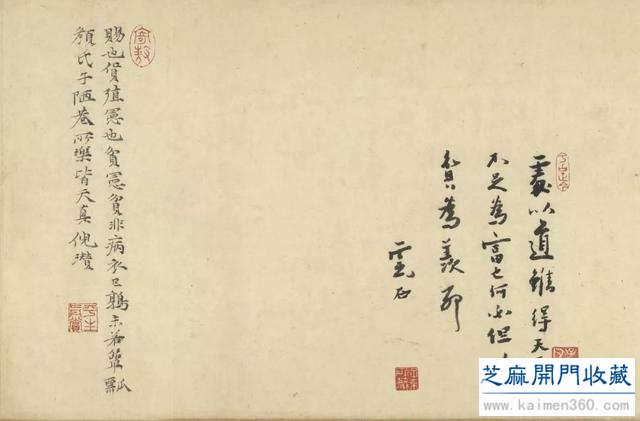 處以道雖得天
不足為富也何必但
貧為羨耶
雲石
賜也貨殖憲也貧憲貧非病衣已鶉未若簞瓢
顏氏子陋巷所樂皆天真倪瓚
平生
真賞
芝麻開門收藏
www.kaimen360.com